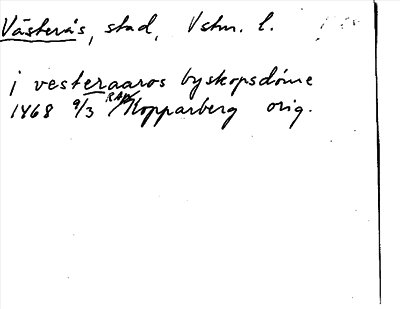 Västerås, stad, Vstm. l.
i vesteraaros byskopsdöme
1468 9/3 RAp Kopparberg orig.